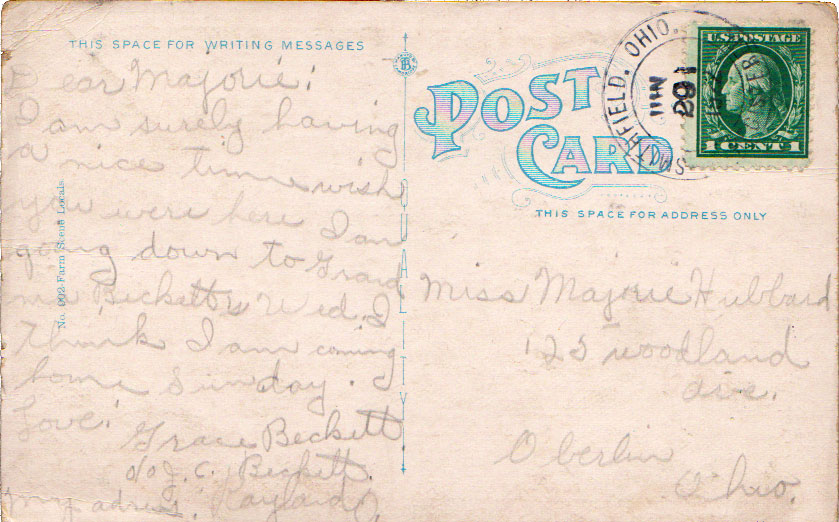 THIS SPACE FOR WRITING MESSAGES
Dear Majorie:
I am surely having
a nice time wish
you were here I am
going down to Grand
ma Beckett's Wed. I
think I am coming
home Sunday.
Love!
Grace Beckett
c/o J. C. Beckett.
My adress. Rayland O.
No. 002-Farm Scene Locals.
QUALITY
POST
CARD
THIS SPACE FOR ADDRESS ONLY
SMITHFIELD, OHIO.
JUN
29
U.S. POSTAGE
1 CENT 1
Miss Majorie Hubbard
125 Woodland
Ave.
Oberlin
Ohio.